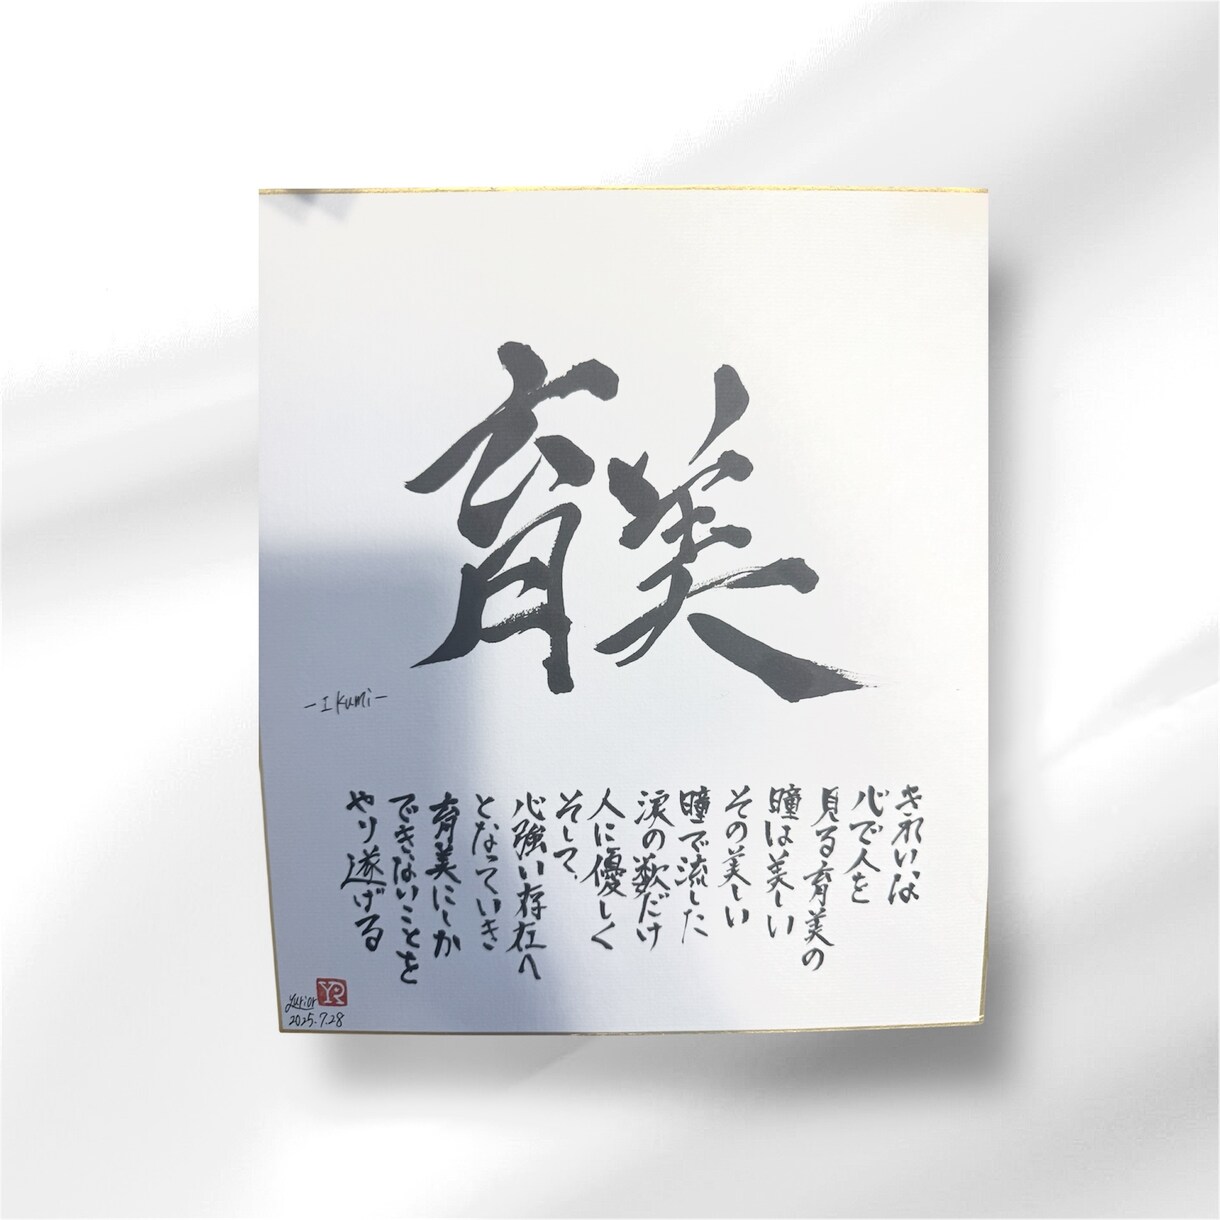 育美
-Ikumi-
きれいな
心で人を
見る育美の
瞳は美しい
その美しい
瞳で流した
涙の数だけ
人に優しく
そして、
心強い存在へ
となっていき
育美にしか
できないことを
やり遂げる
Yurior
2025.7.28
YR